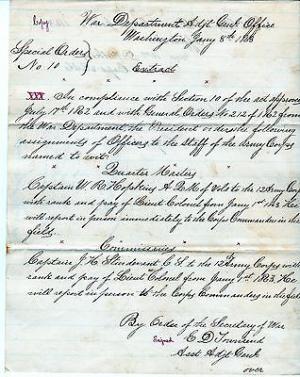 Copy
War Department Adjt Genls Office
Washington Jany 8th 1863
Special Orders
No 10
Extract
XXV. In compliance with Section 10 of the act approved
July 17th 1862 and with General Orders No 212 of 1862 from
the War Department, the President orders the following
assignments of Officers to the Staff of the Army Corps
named to wit:
Quarter Masters
Captain W. R. Hopkins A Q M of Vols to the 12 Army Corps
with rank and pay of Lieut Colonel from Jany 1st 1863 He
will report in person immediately to the Corps Commander in the
field.
Commissaries
Captain J. H. C S to the 12 Army Corps with
rank and pay of Lieut Colonel from Jany 1st 1863. He
will report in person to the Corps Commander in the field
By Order of the Secretary of War
Signed E D Townsend
Asst Adjt Genl
over